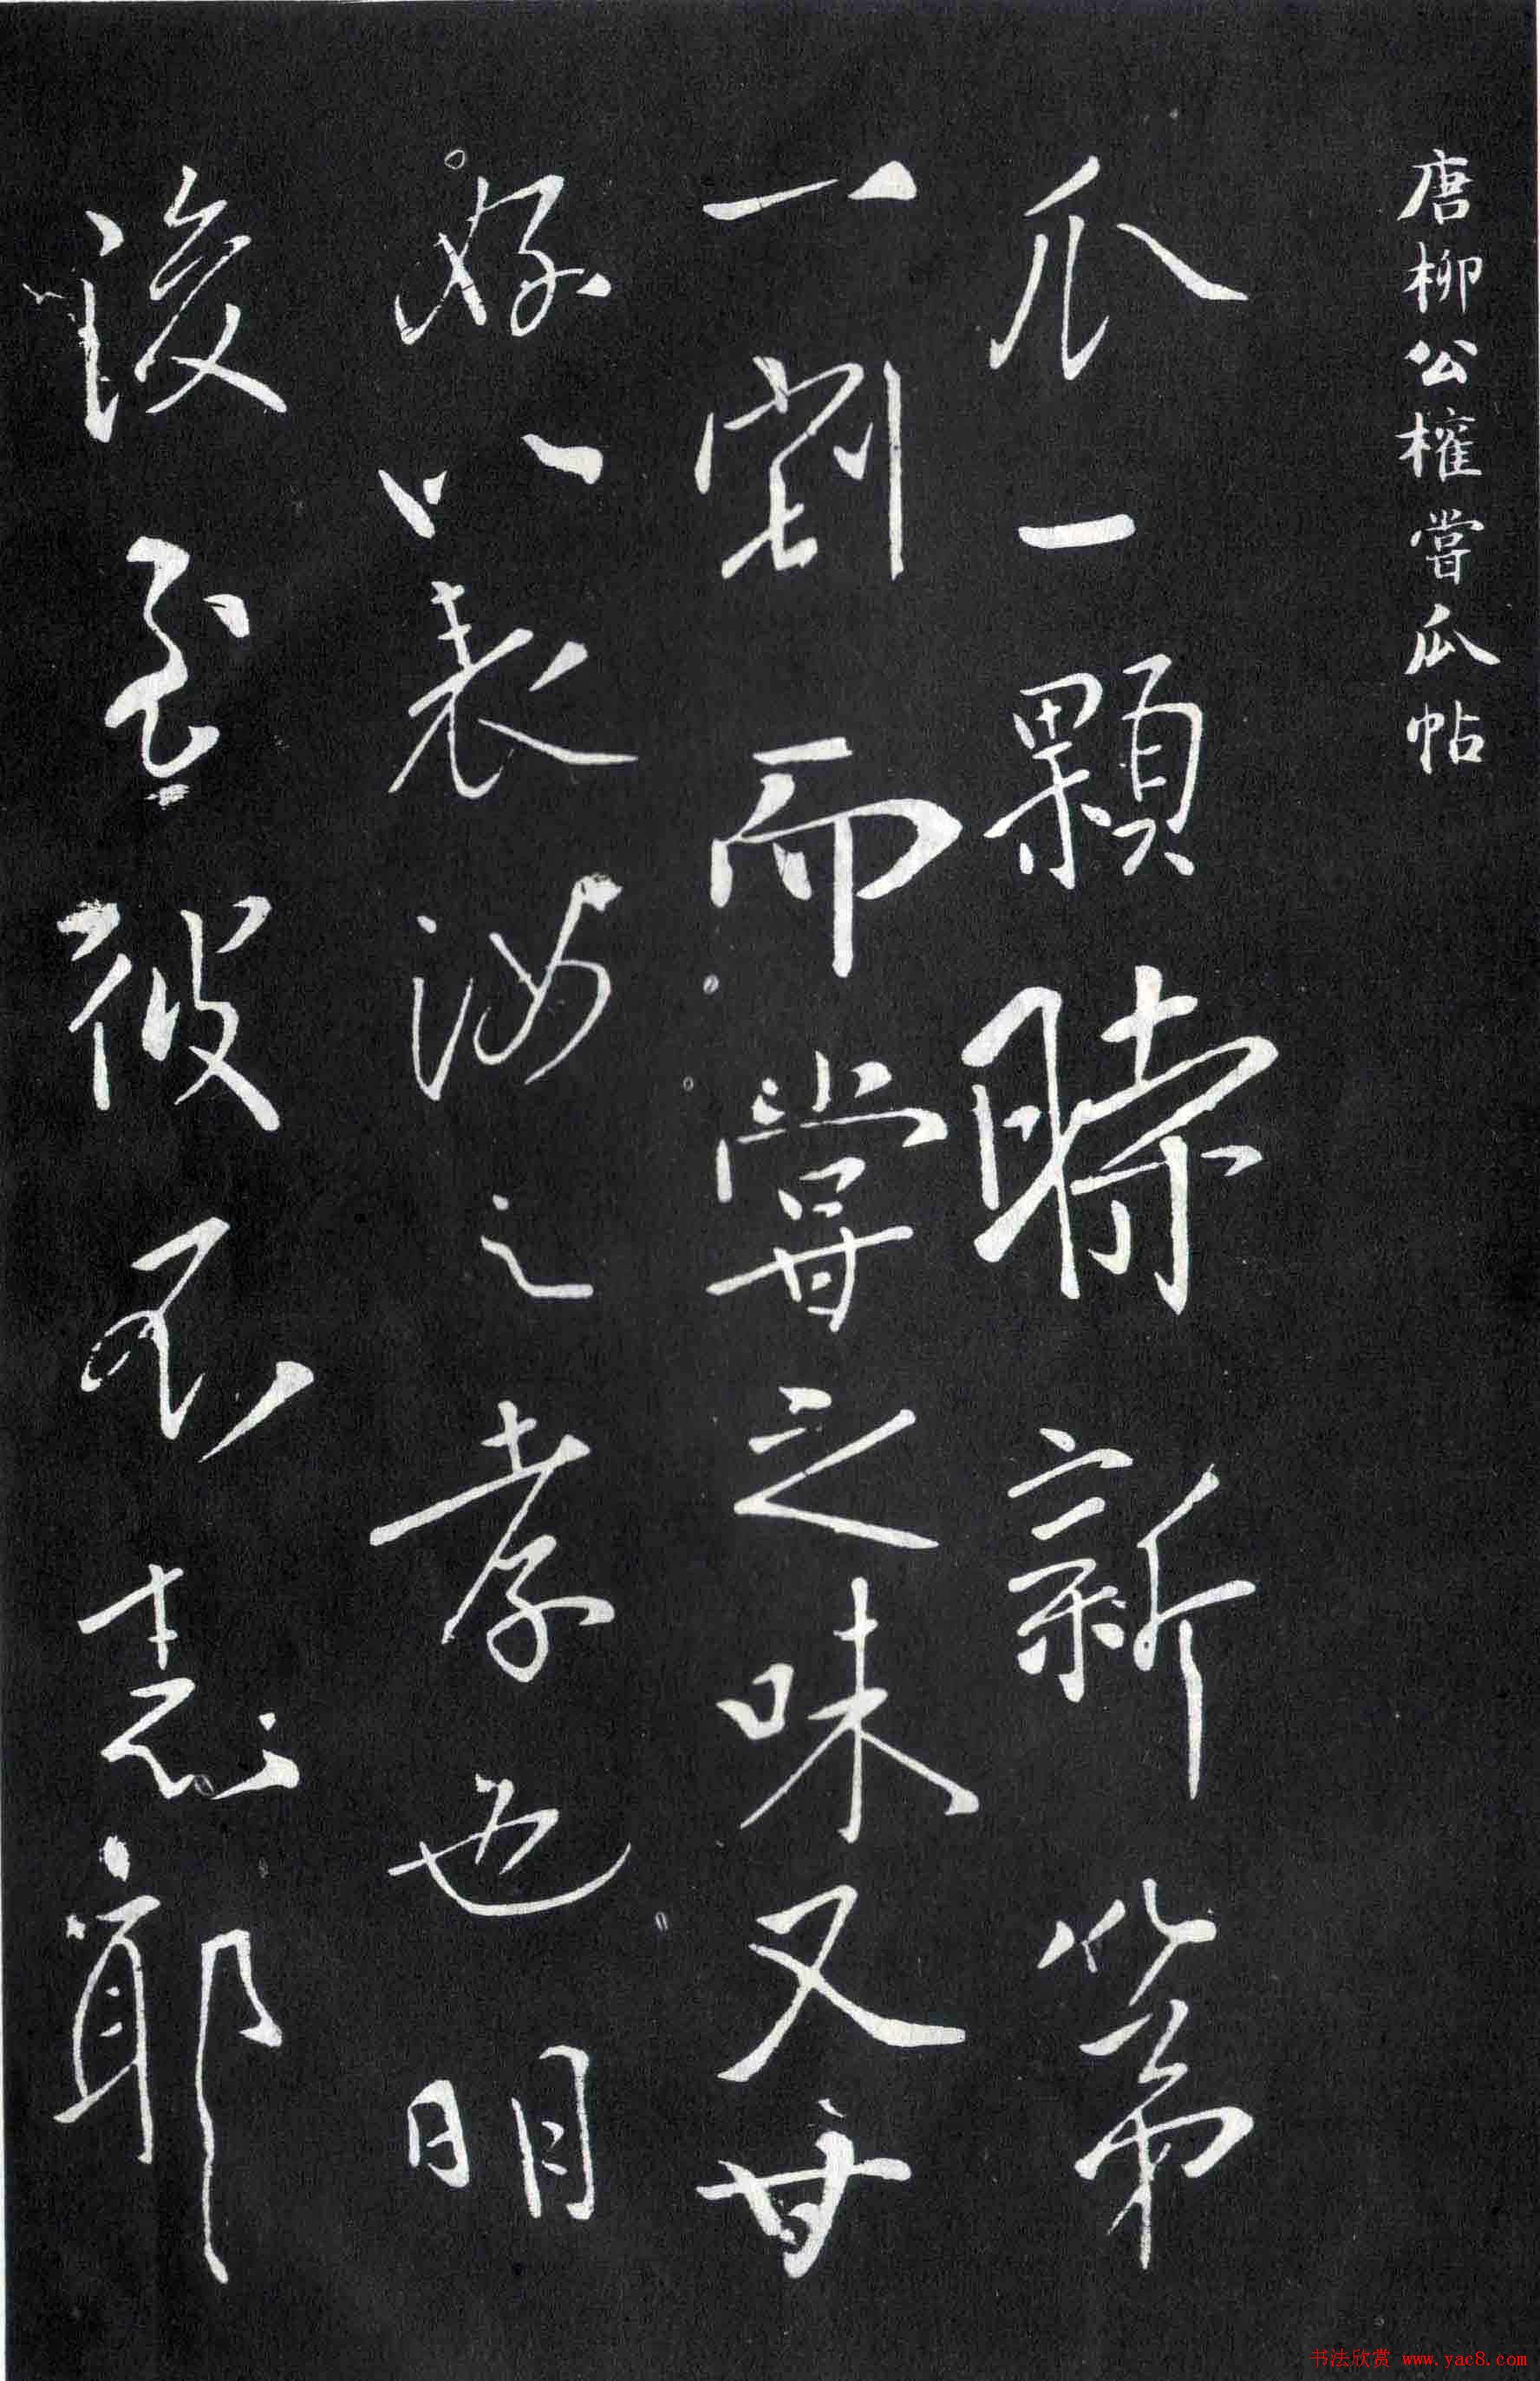 唐柳公權嘗瓜帖
瓜一顆時新第
一割而嘗之味又甘
好以表汝之孝也明
後至彼不悉耶
书法欣赏 www.yac8.com